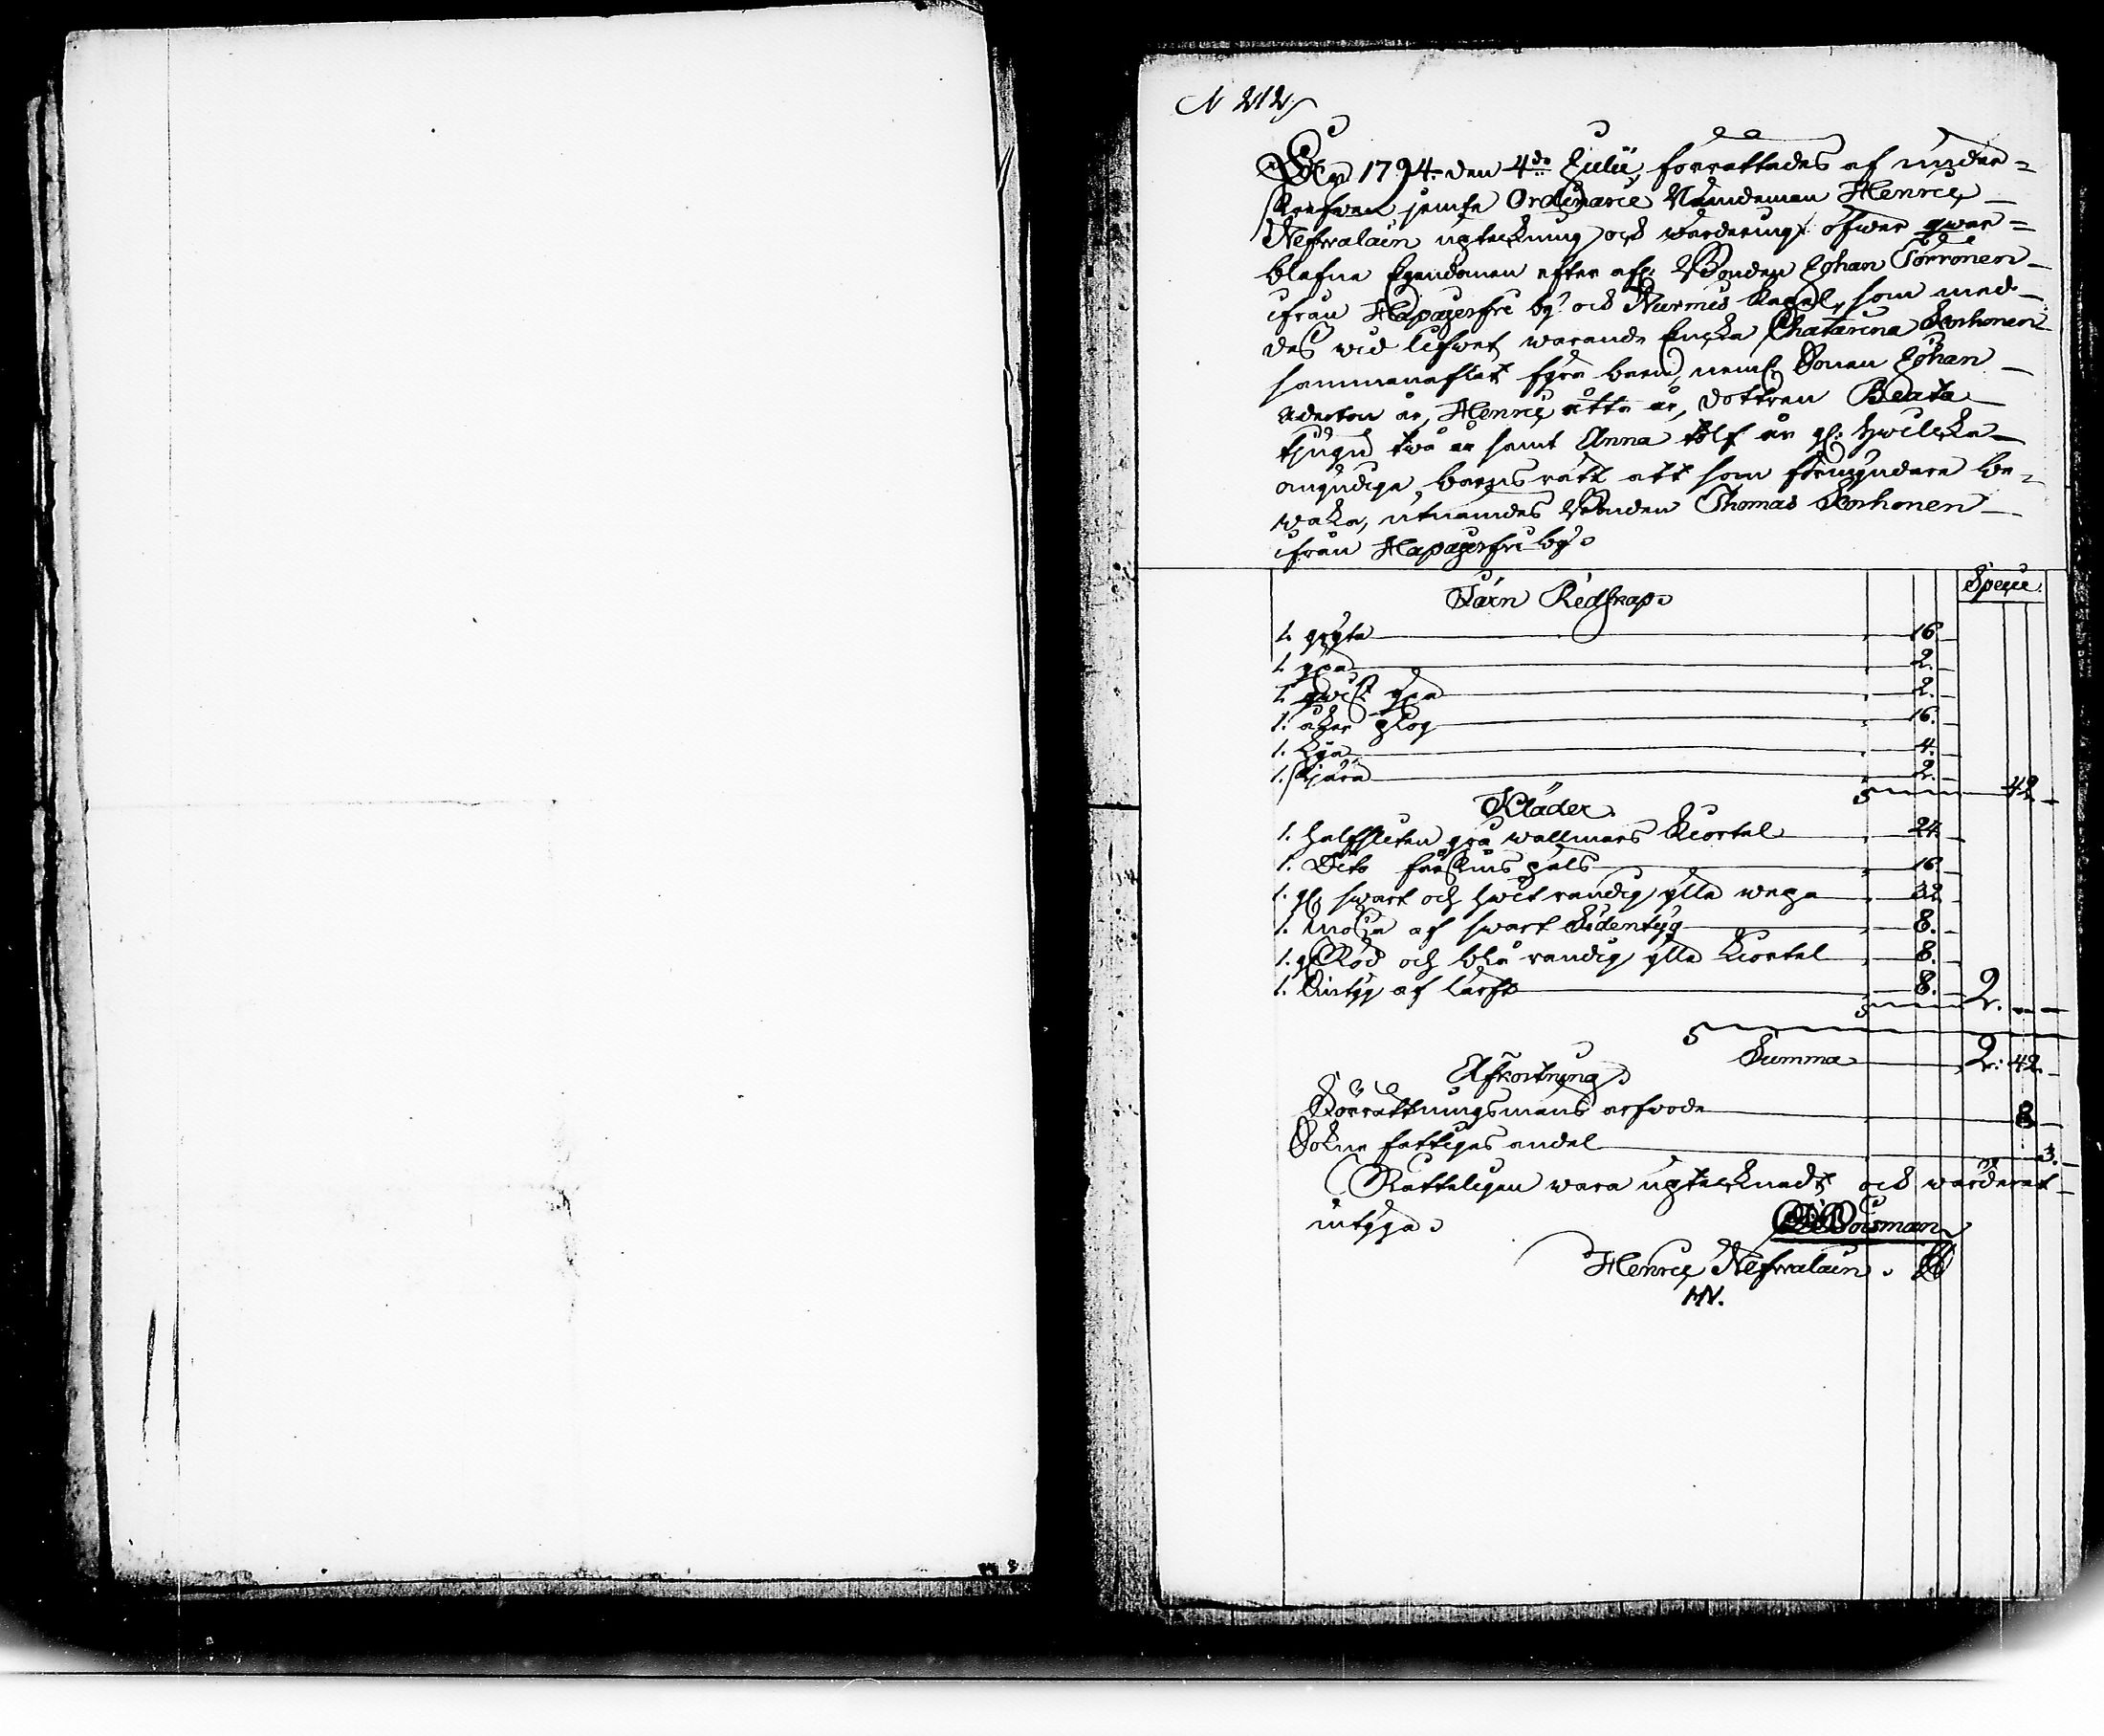 N 212
År 1794 den 4de Julii, förrättades af under=
skrefven jemte Ordinarie Nämdeman Henric
Nefwalain upteckning och wärdering öfwer qwar=
blefne Egendomen efter afl: Bonden Johan Törrönen
ifrån Hapajerfvi by och Nurmis Capel, som med
des wid lifwet warande Encka Chatarina Korhonen
sammanaflat fyra barn, neml: Sonen Johan
aderton år, Henric åtta år, dottren Beata
tjugu två år samt Anna tolf år gl: hwilcka
omyndiga barns rätt att som förmyndare be=
waka, utnämdes Bonden Thomas Korhonen
ifrån Hapajerfvi by.
Specie
Järn Redskap
1. gryta 16.
1. yxa 2.
1. qwist yxa 2.
1. åker plog 16.
1. Lija 4.
1. skjära 2. 42.
Kläder
1. halfsliten grå wallmars Kiortel 24.
1. Dito fårskins päls 16.
1. gl: swart och hwit randig ylle wepa 32.
1. mössa af swart Sidentyg 8.
1. gl: Röd och blå randig ylle Kiortel 8.
1. Lintyg af lärft 8. 2.
Summa 2: 42.
Afkortning
Förrättningsmans arfvode 8
Sokne fattigas andel 3.
Rätteligen wara uptecknadt och wärderat
intyga.
Woisman
Henric Nefwalain.
HN.